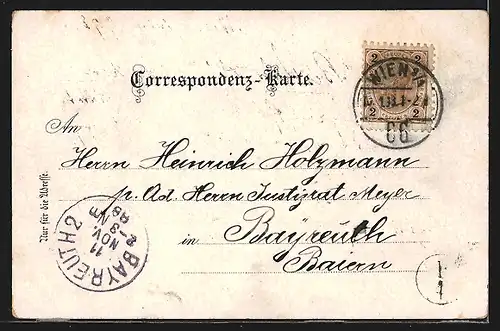 Correspondenz-Karte.
2 2
WIEN
2 2
66
An
Herrn Heinrich Holzmann
p. Ad. Herrn Justizrat Meyer
in Bayreuth
Baiern
Nur für die Adresse.
BAYREUTH 2
11
NOV.